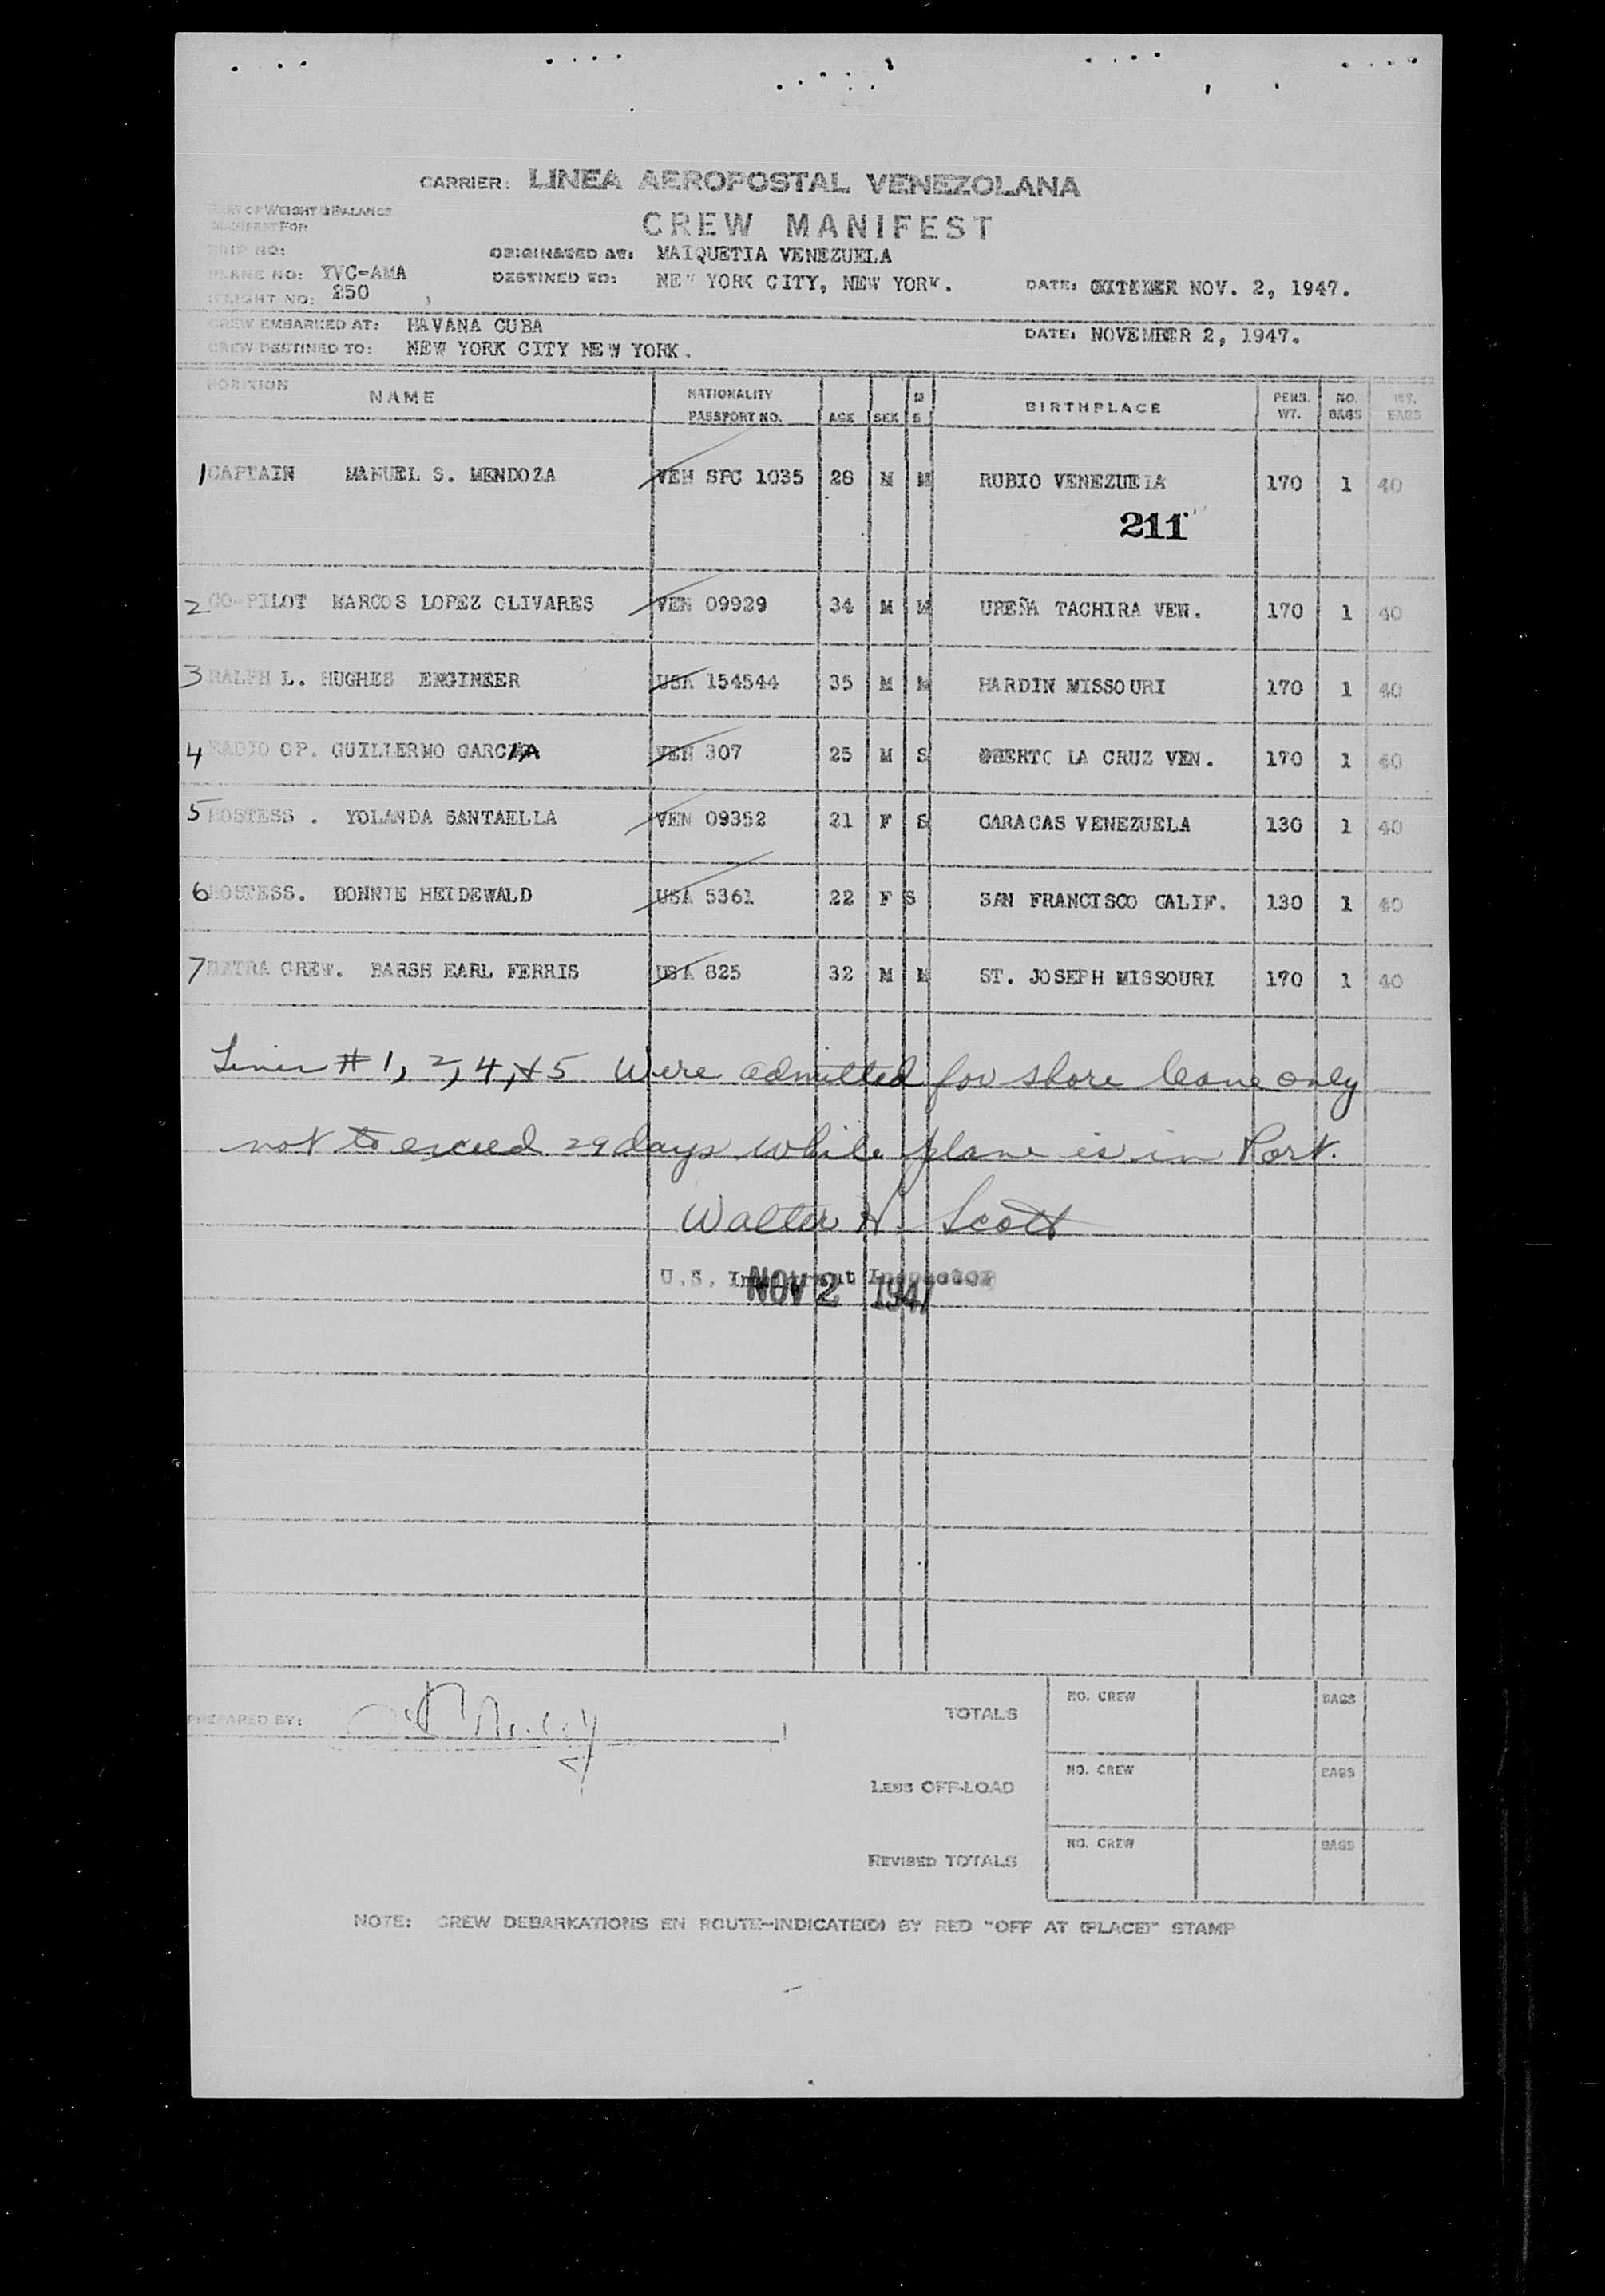 CARRIER: LINEA AEROPOSTAL VENEZOLANA
PART OF WEIGHT & BALANCE
MANIFEST FOR
CREW MANIFEST
TRIP NO:
ORIGINATED AT: MAIQUETIA VENEZUELA
PLANE NO: YVC-AMA
DESTINED TO: NEW YORK CITY, NEW YORK.
DATE: NOV. 2, 1947.
FLIGHT NO: 250
CREW EMBARKED AT: HAVANA CUBA
DATE: NOVEMBER 2, 1947.
CREW DESTINED TO: NEW YORK CITY NEW YORK.
POSITION NAME NATIONALITY PASSPORT NO. AGE SEX M S BIRTHPLACE PERS. WT. NO. BAGS WT. BAGS
1 CAPTAIN MANUEL S. MENDOZA VEN SPC 1035 28 M M RUBIO VENEZUELA 170 1 40
211
2 CO-PILOT MARCOS LOPEZ OLIVARES VEN 09929 34 M M UREÑA TACHIRA VEN. 170 1 40
3 RALPH L. HUGHES ENGINEER USA 154544 35 M M HARDIN MISSOURI 170 1 40
4 RADIO OP. GUILLERMO GARCIA VEN 307 25 M S LA CRUZ VEN. 170 1 40
5 HOSTESS . YOLANDA SANTAELLA VEN 09352 21 F S CARACAS VENEZUELA 130 1 40
6 HOSTESS. BONNIE HEIDEWALD USA 5361 22 F S SAN FRANCISCO CALIF. 130 1 40
7 EXTRA CREW. BARSH EARL FERRIS USA 825 32 M M ST. JOSEPH MISSOURI 170 1 40
Lines # 1, 2, 4, & 5 Were admitted for shore leave only
not to exceed 29 days while plane is in Port.
Walter H. Scott
U.S. Immigrant Inspector
NOV 2 1947
PREPARED BY:
TOTALS NO. CREW BAGS
LESS OFF-LOAD NO. CREW BAGS
REVISED TOTALS NO. CREW BAGS
NOTE: CREW DEBARKATIONS EN ROUTE-INDICATE(D) BY RED "OFF AT (PLACE)" STAMP